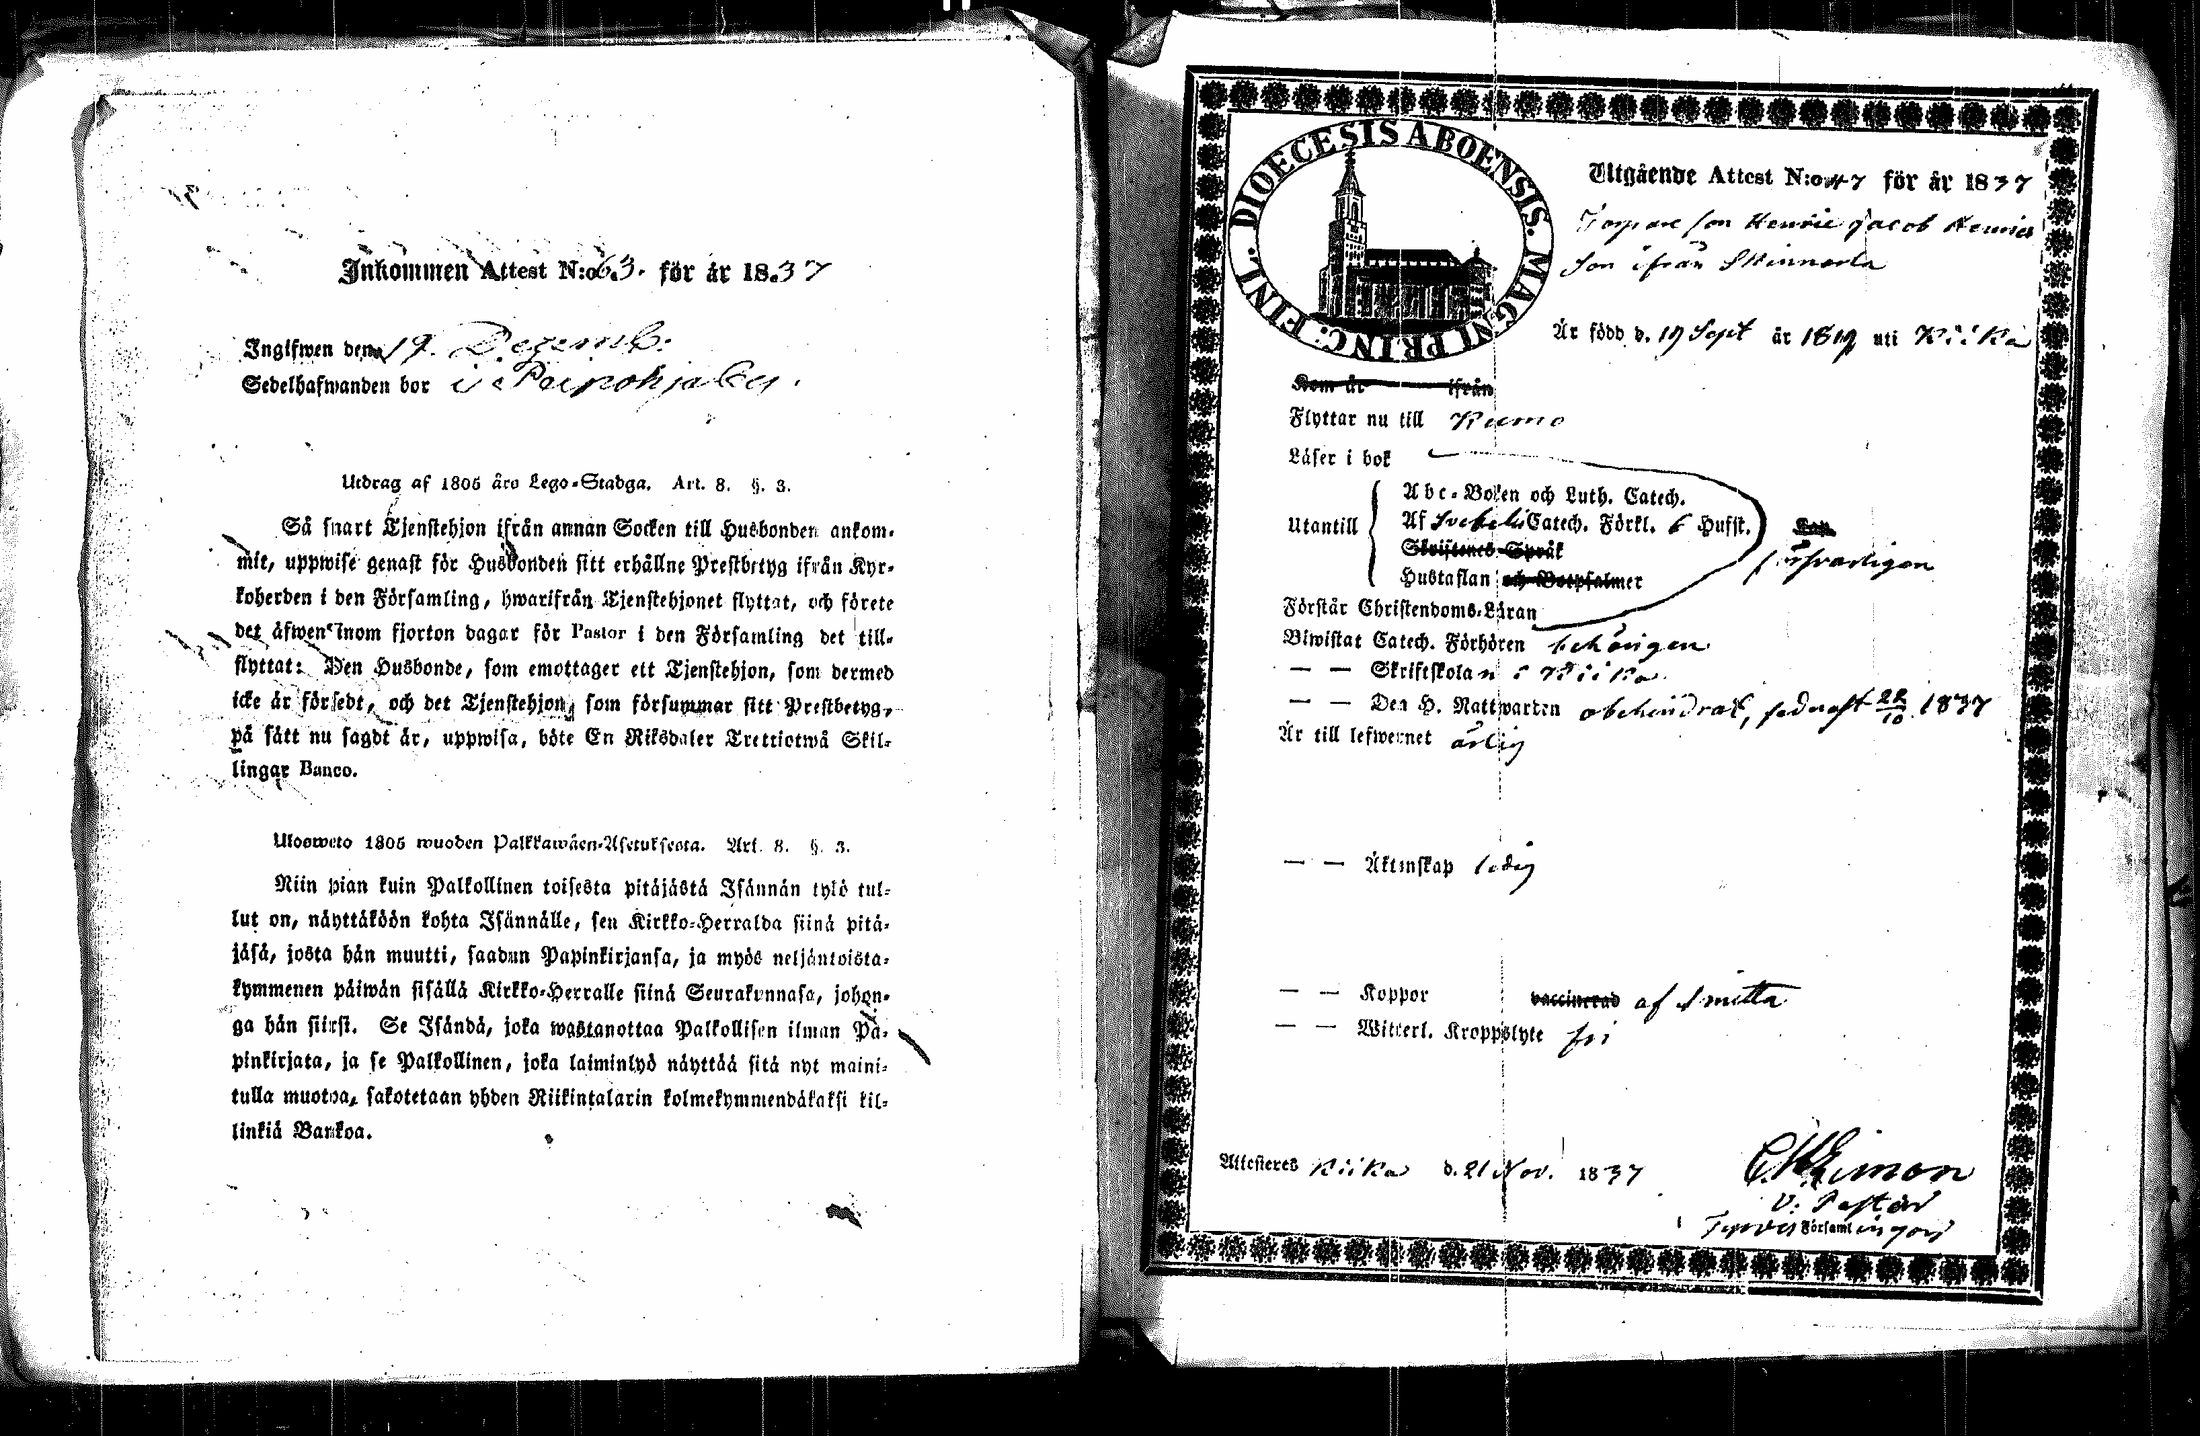 Inkommen Attest N:o 63. för år 1837
Ingifwen den 19. Dezemb:
Sedelhafwanden bor i Peipohjaby.
Utdrag af 1805 års Lego-Stadga. Art. 8. §. 3.
Så snart Tjenstehjon ifrån annan Socken till Husbonden ankom-
mit, uppwise genast för Husbonden sitt erhållne Prestbetyg ifrån Kyr-
koherden i den Församling, hwarifrån Tjenstehjonet flyttat, och förete
det äfwen inom fjorton dagar för Pastor i den Församling det till-
flyttat: Den Husbonde, som emottager ett Tjenstehjon, som dermed
icke är försedt, och det Tjenstehjon, som försummar sitt Prestbetyg,
på sätt nu sagdt är, uppwisa, böte En Riksdaler Trettiotwå Skil-
lingar Banco.
Ulosweto 1805 wuoden Palkkawäen-Asetuksesta. Art. 8. §. 3.
Niin pian kuin Palkollinen toisesta pitäjästä Isännän tykö tul-
lut on, näyttäköön kohta Isännälle, sen Kirkko-Herralda siinä pitä-
jäsä, josta hän muutti, saadun Papinkirjansa, ja myös neljäntoista-
kymmenen päiwän sisällä Kirkko-Herralle siinä Seurakunnasa, johon-
ga hän siirsi. Se Isändä, joka wastanottaa Palkollisen ilman Pa-
pinkirjata, ja se Palkollinen, joka laiminlyö näyttää sitä nyt maini-
tulla muotoa, sakotetaan yhden Riikintalarin kolmekymmendäkaksi kil-
linkiä Bankoa.
DIOECESIS ABOENSIS. MAGNI PRINC. FINL.
Utgående Attest N:o 47 för år 1837
Torpare son Henric Jacob Henrics
son ifrån Skinnarla
Är född d. 19 Sept år 1819 uti Kiika
Kom år ifrån
Flyttar nu till Kumo
Läser i bok
Utantill
Abc-Boken och Luth. Catech.
Af Svebelii Catech. Förkl. 6 Hufst.
Skriftenes Språk
Hustaflan och Botpsalmer
försvarligen
Förstår Christendoms-Läran
Biwistat Catech. Förhören behörigen
— — Skriftskolan i Kiika
— — Den H. Nattwarden obehindrat, sednast 22/10 1837
Är till lefwernet ärlig
— — Äktenskap ledig
— — Koppor vaccinerad af Smitta
— — Witterl. Kroppslyte fri
Attesteres Kiika d. 21 Nov. 1837
Simon
V. Pastor
Tyrvis Församlingar